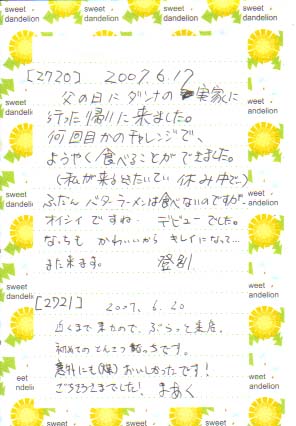 sweet dandelion
sweet dandelion
sweet dandelion
[2720] 2007.6.17
父の日にダンナの実家に
行った帰りに来ました。
何回目かのチャレンジで、
ようやく食べることができました。
(私が来るときたいてい休み中で…)
ふだん バターラーメンは食べないのですが、
オイシイですね デビューでした。
かわいいから キレイになって…
また来ます。
[2721] 2007.6.20
近くまで来たので、ぶらっと来店。
初めてのとんこつ です。
意外にも(笑)おいしかったです!
ごちそうさまでした! まあく
sweet dandelion
sweet dandelion
sweet dandelion
sweet dandelion
sweet dandelion